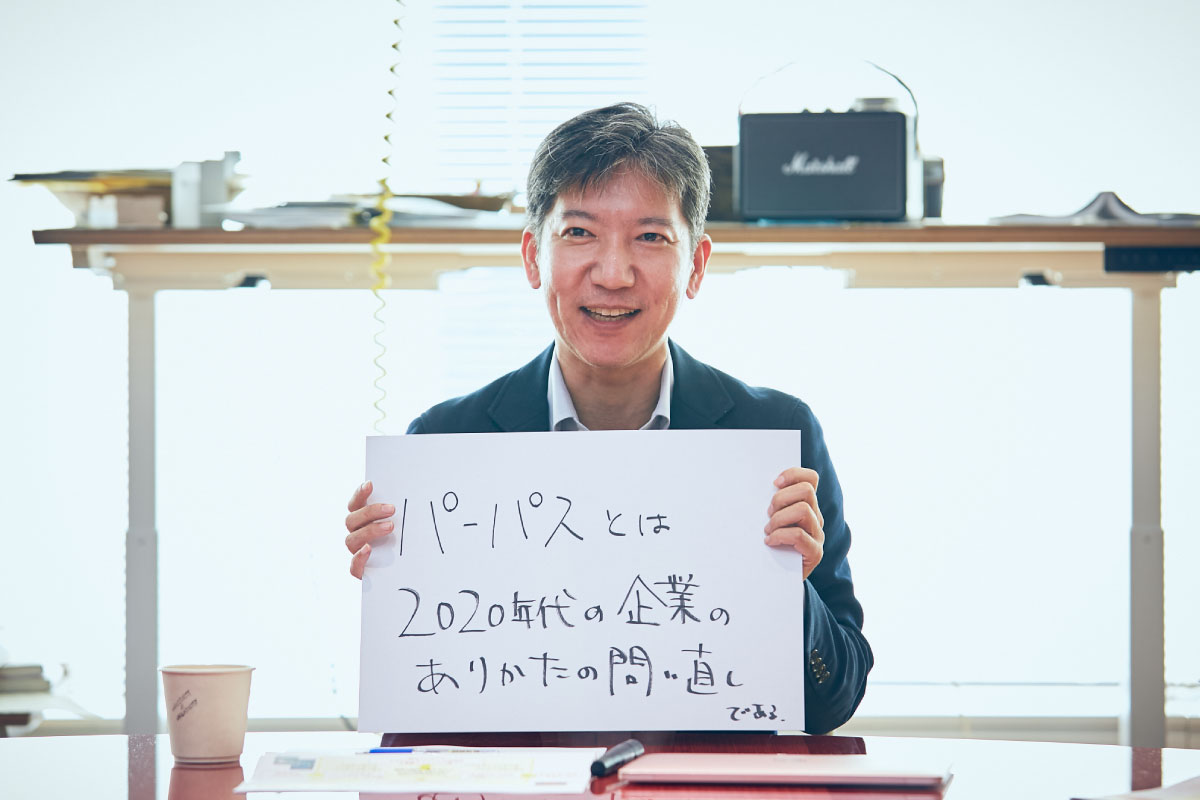 Marshall
パーパスとは
2020年代の企業の
ありかたの問い直し
である.